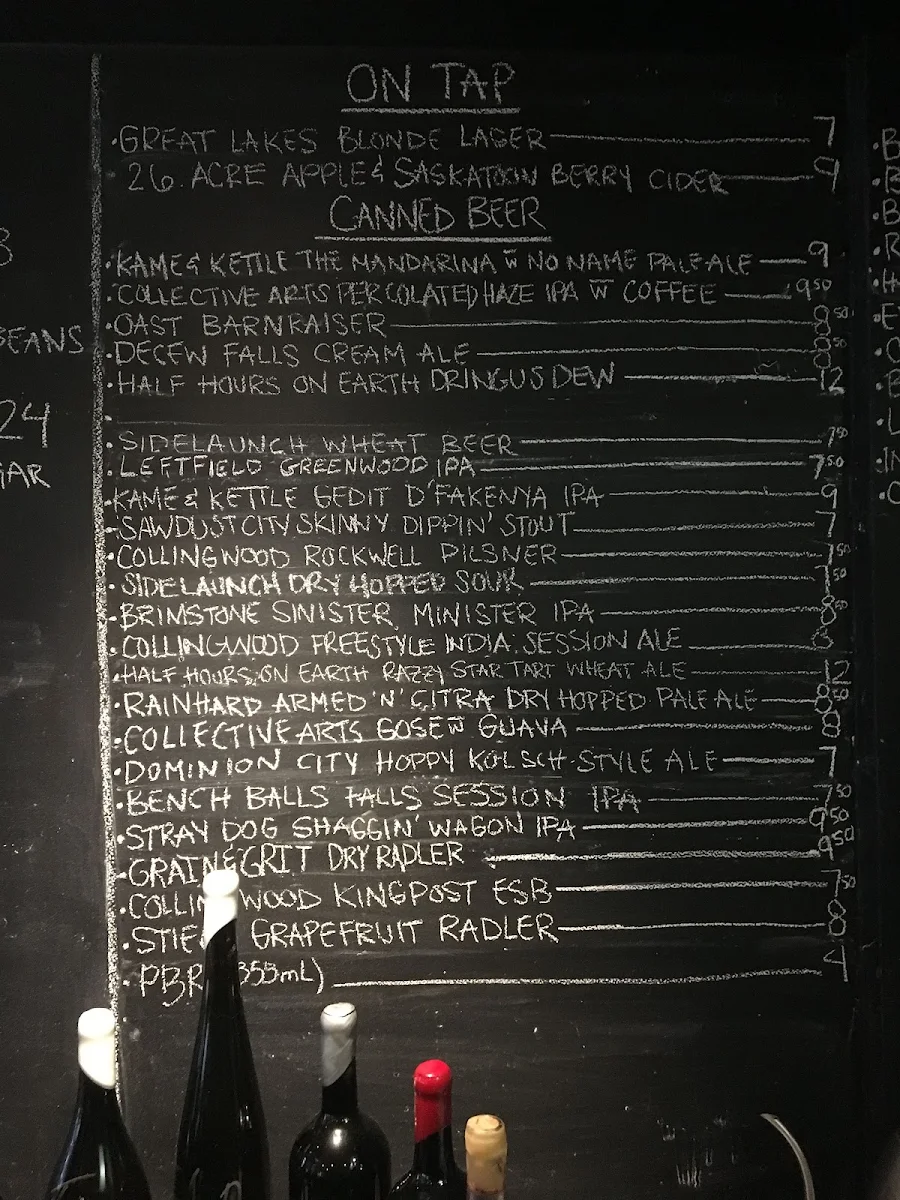 ON TAP
·GREAT LAKES BLONDE LAGER 7
26. ACRE APPLE & SASKATOON BERRY CIDER 9
CANNED BEER
·KAME & KETTLE THE MANDARINA w̅ NO NAME PALE ALE 9
·COLLECTIVE ARTS PERCOLATED HAZE IPA w̅ COFFEE 9⁵⁰
·OAST BARNRAISER 8⁵⁰
·DECEW FALLS CREAM ALE
·HALF HOURS ON EARTH DRINGUS DEW 12
·SIDELAUNCH WHEAT BEER 7⁵⁰
·LEFTFIELD GREENWOOD IPA 7⁵⁰
·KAME & KETTLE GEDIT D'FAKENYA IPA 9
·SAWDUST CITY SKINNY DIPPIN' STOUT 7
·COLLINGWOOD ROCKWELL PILSNER 7⁵⁰
·SIDELAUNCH DRY HOPPED SOUR 7⁵⁰
·BRIMSTONE SINISTER MINISTER IPA 8⁵⁰
·COLLINGWOOD FREESTYLE INDIA SESSION ALE 8
·HALF HOURS ON EARTH RAZZY STAR TART WHEAT ALE 12
·RAINHARD ARMED 'N' CITRA DRY HOPPED PALE ALE 8⁵⁰
·COLLECTIVE ARTS GOSE w̅ GUAVA 8
·DOMINION CITY HOPPY KOLSCH-STYLE ALE 7
·BENCH BALLS FALLS SESSION IPA 7⁵⁰
·STRAY DOG SHAGGIN' WAGON IPA 9⁵⁰
·GRAIN & GRIT DRY RADLER 9⁵⁰
·COLLIN WOOD KINGPOST ESB 7⁵⁰
·STIE GRAPEFRUIT RADLER 8
·PBR 355mL) 4
BEANS
24